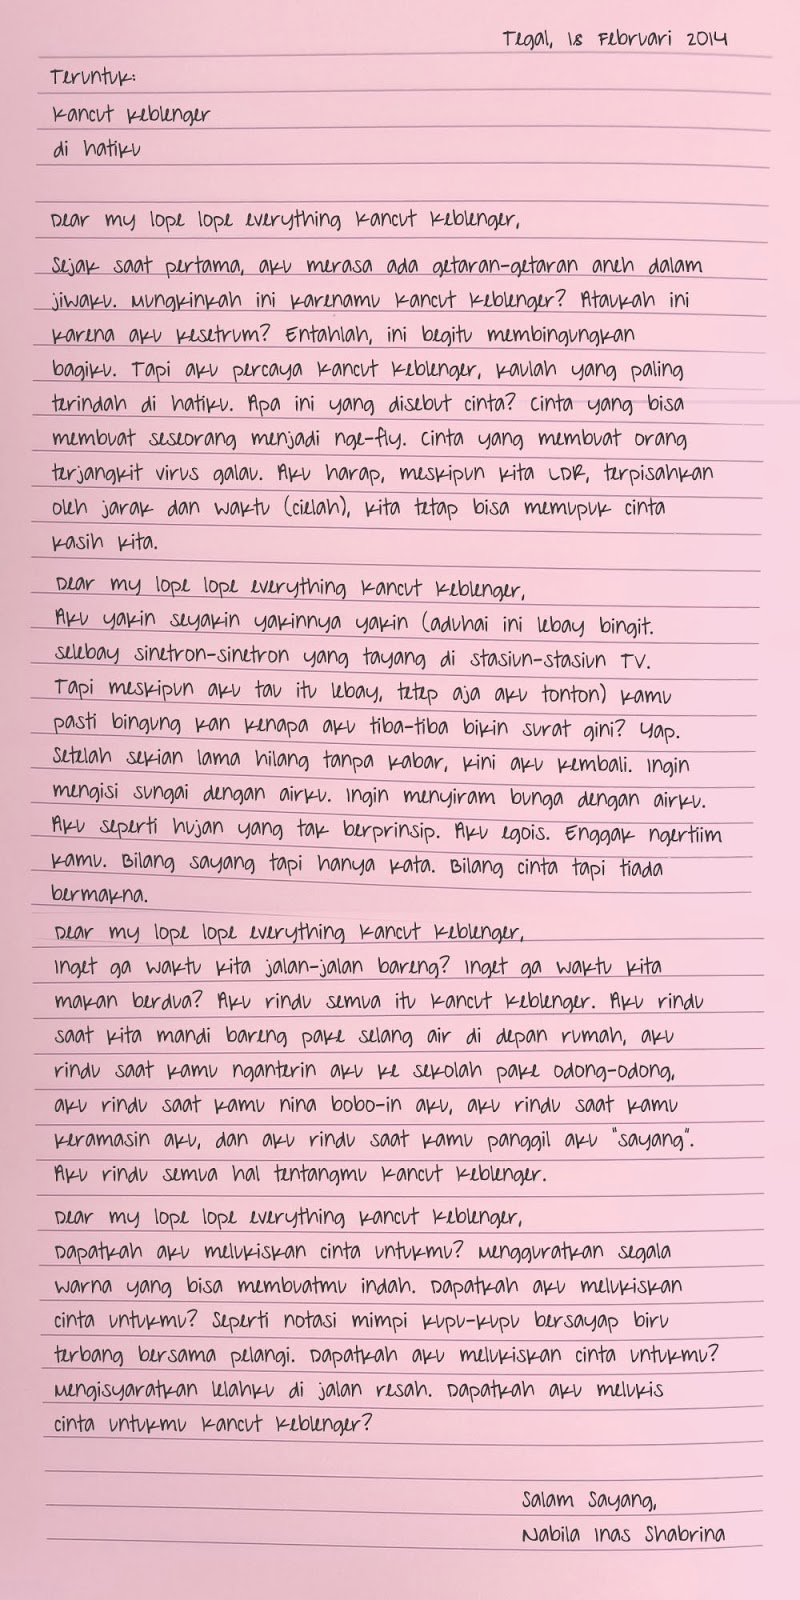 Tegal, 18 Februari 2014
Teruntuk:
Kancut Keblenger
di hatiku
Dear my lope lope everything Kancut Keblenger,
Sejak saat pertama, aku merasa ada getaran-getaran aneh dalam
jiwaku. Mungkinkah ini karenamu Kancut Keblenger? Ataukah ini
karena aku kesetrum? Entahlah, ini begitu membingungkan
bagiku. Tapi aku percaya Kancut Keblenger, kaulah yang paling
terindah di hatiku. Apa ini yang disebut cinta? Cinta yang bisa
membuat seseorang menjadi nge-fly. Cinta yang membuat orang
terjangkit virus galau. Aku harap, meskipun kita LDR, terpisahkan
oleh jarak dan waktu (cielah), kita tetap bisa memupuk cinta
kasih kita.
Dear my lope lope everything Kancut Keblenger,
Aku yakin seyakin yakinnya yakin (aduhai ini lebay bingit.
selebay sinetron-sinetron yang tayang di stasiun-stasiun TV.
Tapi meskipun aku tau itu lebay, tetep aja aku tonton) kamu
pasti bingung kan kenapa aku tiba-tiba bikin surat gini? Yap.
Setelah sekian lama hilang tanpa kabar, kini aku kembali. Ingin
mengisi sungai dengan airku. Ingin menyiram bunga dengan airku.
Aku seperti hujan yang tak berprinsip. Aku egois. Enggak ngertiim
kamu. Bilang sayang tapi hanya kata. Bilang cinta tapi tiada
bermakna.
Dear my lope lope everything Kancut Keblenger,
Inget ga waktu kita jalan-jalan bareng? Inget ga waktu kita
makan berdua? Aku rindu semua itu Kancut Keblenger. Aku rindu
saat kita mandi bareng pake selang air di depan rumah, aku
rindu saat kamu nganterin aku ke sekolah pake odong-odong,
aku rindu saat kamu nina bobo-in aku, aku rindu saat kamu
keramasin aku, dan aku rindu saat kamu panggil aku "sayang".
Aku rindu semua hal tentangmu Kancut Keblenger.
Dear my lope lope everything Kancut Keblenger,
Dapatkah aku melukiskan cinta untukmu? Mengguratkan segala
warna yang bisa membuatmu indah. Dapatkah aku melukiskan
cinta untukmu? Seperti notasi mimpi kupu-kupu bersayap biru
terbang bersama pelangi. Dapatkah aku melukiskan cinta untukmu?
Mengisyaratkan lelahku di jalan resah. Dapatkah aku melukis
cinta untukmu Kancut Keblenger?
Salam Sayang,
Nabila Inas Shabrina